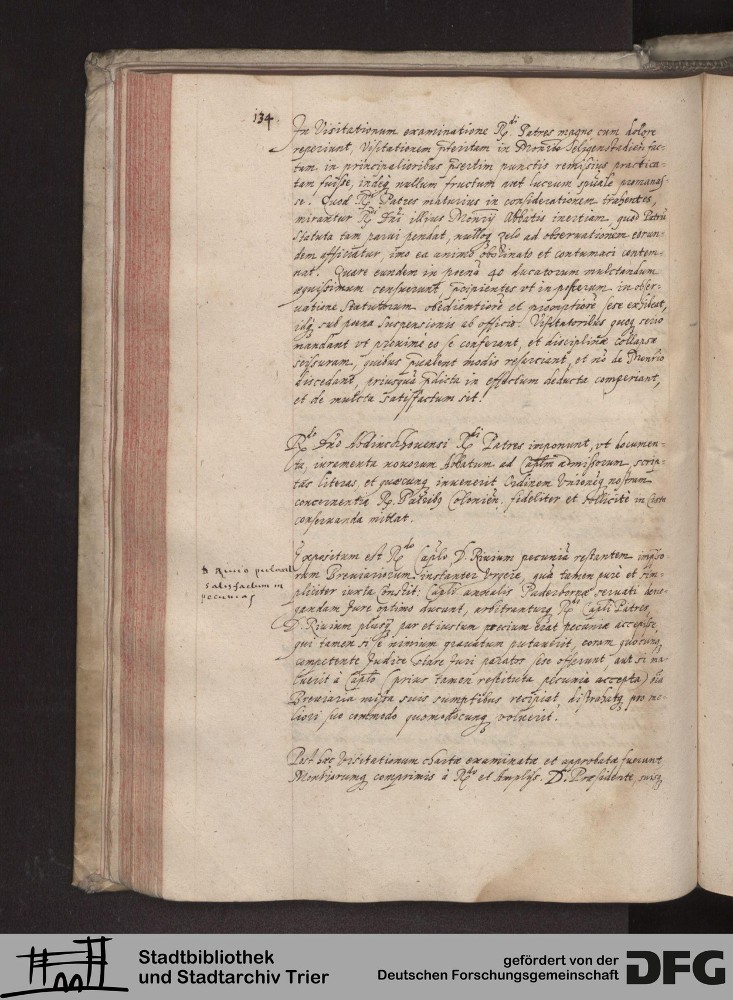 134
In Visitationum examinatione R.di Patres magno cum dolore
reperiunt, Visitationem pteritam in Monrio Seligenstadien fac-
tam in principalioribus psertim punctis remissius practica-
tam fuisse, indeq nullum fructum aut lucrum spiale promanas-
se. Quod R.di Patres maturius in considerationem trahentes,
mirantur R.di Dni illius Monrij Abbatis inertiam, quod Patru
statuta tam parui pendat, nulloq zelo ad obseruationem eorun-
dem afficiatur, imo ea animo obstinato et contumaci contem-
nat. Quare eundem in poena 40 ducatorum mulctandum
aequissimum censuerunt pcipientes vt in posterum in obser-
uatione statutorum obedientiore et promptiore sese exhibeat,
idq sub poena suspensionis ab officio. Visitatoribus quoq serio
mandant vt proxime eo se conferant, et disciplinae collapsae
scissuram, quibus pualent modis resarciant, et no de Monrio
discedant, priusqua pdicta in effectum deducta comperiant,
et de mulcta satisfactum sit.
R.do Dno Abdinckhouensi R.di Patres imponunt, vt documen-
ta, iuramenta nouorum Abbatum ad Caplm admissorum, scrip-
tas literas, et quaecunq inuenerit Ordinem Unioneq nostram
concernentia R. Patribq Colonien. fideliter et sollicite in Cista
conseruanda mittat.
Expositum est R.do Caplo, D. Riuium pecunia restantem impso-
rum Breuiariorum instanter vrgere, qua tamen pure et sim-
pliciter iuxta Constit: Capli annalis Paderbornae seruati dene-
gandam Jure optimo ducunt, arbitranturq R.di Capli Patres,
D. Riuium plusq par et iustum precium erat pecuniae accepisse,
qui tamen si se nimium grauatum putauerit, coram quocunq
competente Judice stare Juri paratos sese offerunt, aut si ma-
luerit à Caplo (prius tamen restituta pecunia accepta) oia
Breuiaria missa suis sumptibus recipiat, distrahatq pro me-
liori suo commodo quomodocunq voluerit.
D Riuio
satisfactum in
pecunias
Post haec Visitationum chartae examinatae et approbatae fuerunt
Monbiorumq comprimis à R.do et Ampliss. D. Praesidente, suisq
Stadtbibliothek
und Stadtarchiv Trier
gefördert von der
Deutschen Forschungsgemeinschaft
DFG